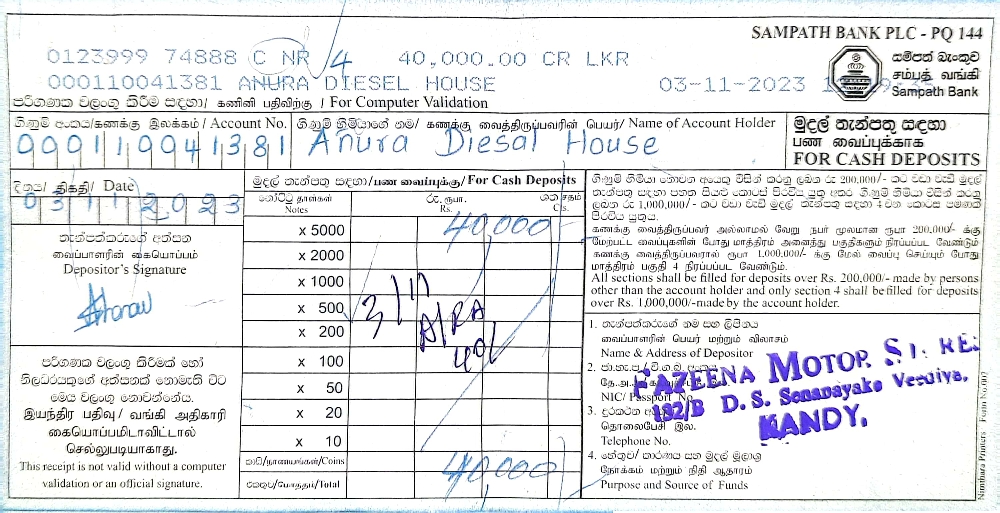 SAMPATH BANK PLC - PQ 144
0123999 74888 C NR 4 40,000.00 CR LKR
000110041381 ANURA DIESEL HOUSE 03-11-2023
සම්පත් බැංකුව
சம்பத் வங்கி
Sampath Bank
පරිගණක වලංගු කිරීම සඳහා / கணினி பதிவிற்கு / For Computer Validation
ගිණුම් අංකය/கணக்கு இலக்கம் / Account No.
ගිණුම් හිමියාගේ නම/ கணக்கு வைத்திருப்பவரின் பெயர்/ Name of Account Holder
000110041381 Anura Diesal House
මුදල් තැන්පතු සඳහා
பண வைப்புக்காக
FOR CASH DEPOSITS
දිනය/ திகதி/ Date
03112023
මුදල් තැන්පතු සඳහා/பண வைப்புக்கு/ For Cash Deposits
නෝට්ටු தாள்கள் Notes
රු. ரூபா. Rs.
ශත சதம் Cts.
x 5000 40,000
x 2000
x 1000
x 500 3/11
x 200 A/RA
x 100
x 50
x 20
x 10
කාසි/நாணயங்கள்/Coins
එකතුව/மொத்தம்/Total 40,000
තැන්පත්කරුගේ අත්සන
வைப்பாளரின் கையொப்பம்
Depositor's Signature
පරිගණක වලංගු කිරීමක් හෝ
නිලධරයකුගේ අත්සනක් නොමැති විට
මෙය වලංගු නොවන්නේය.
இயந்திர பதிவு / வங்கி அதிகாரி
கையொப்பமிடாவிட்டால்
செல்லுபடியாகாது.
This receipt is not valid without a computer
validation or an official signature.
ගිණුම් හිමියා නොවන අයෙකු විසින් කරනු ලබන රු 200,000/- කට වඩා වැඩි මුදල්
තැන්පතු සඳහා පහත සියළු කොටස් පිරවිය යුතු අතර ගිණුම් හිමියා විසින් කරනු
ලබන රු 1,000,000/- කට වඩා වැඩි මුදල් තැන්පතු සඳහා 4 වන කොටස පමණක්
පිරවිය යුතුය.
கணக்கு வைத்திருப்பவர் அல்லாமல் வேறு நபர் மூலமான ரூபா 200,000/- க்கு
மேற்பட்ட வைப்புகளின் போது மாத்திரம் அனைத்து பகுதிகளும் நிரப்பப்பட வேண்டும்
கணக்கு வைத்திருப்பவரால் ரூபா 1,000,000/- க்கு மேல் வைப்பு செய்யும் போது
மாத்திரம் பகுதி 4 நிரப்பப்பட வேண்டும்.
All sections shall be filled for deposits over Rs. 200,000/- made by persons
other than the account holder and only section 4 shall be filled for deposits
over Rs. 1,000,000/-made by the account holder.
1. තැන්පත්කරුගේ නම සහ ලිපිනය
வைப்பாளரின் பெயர் மற்றும் விலாசம்
Name & Address of Depositor
FAZEENA MOTOR
182/B D. S. Senanayake Veediya,
KANDY.
2.
NIC/ Passport No
3. දුරකථන
தொலைபேசி இல.
Telephone No.
4. හේතුව/ කාරණය සහ මුදල් මූලාශ්‍ර
நோக்கம் மற்றும் நிதி ஆதாரம்
Purpose and Source of Funds
Nimthara Printers - Form No.007